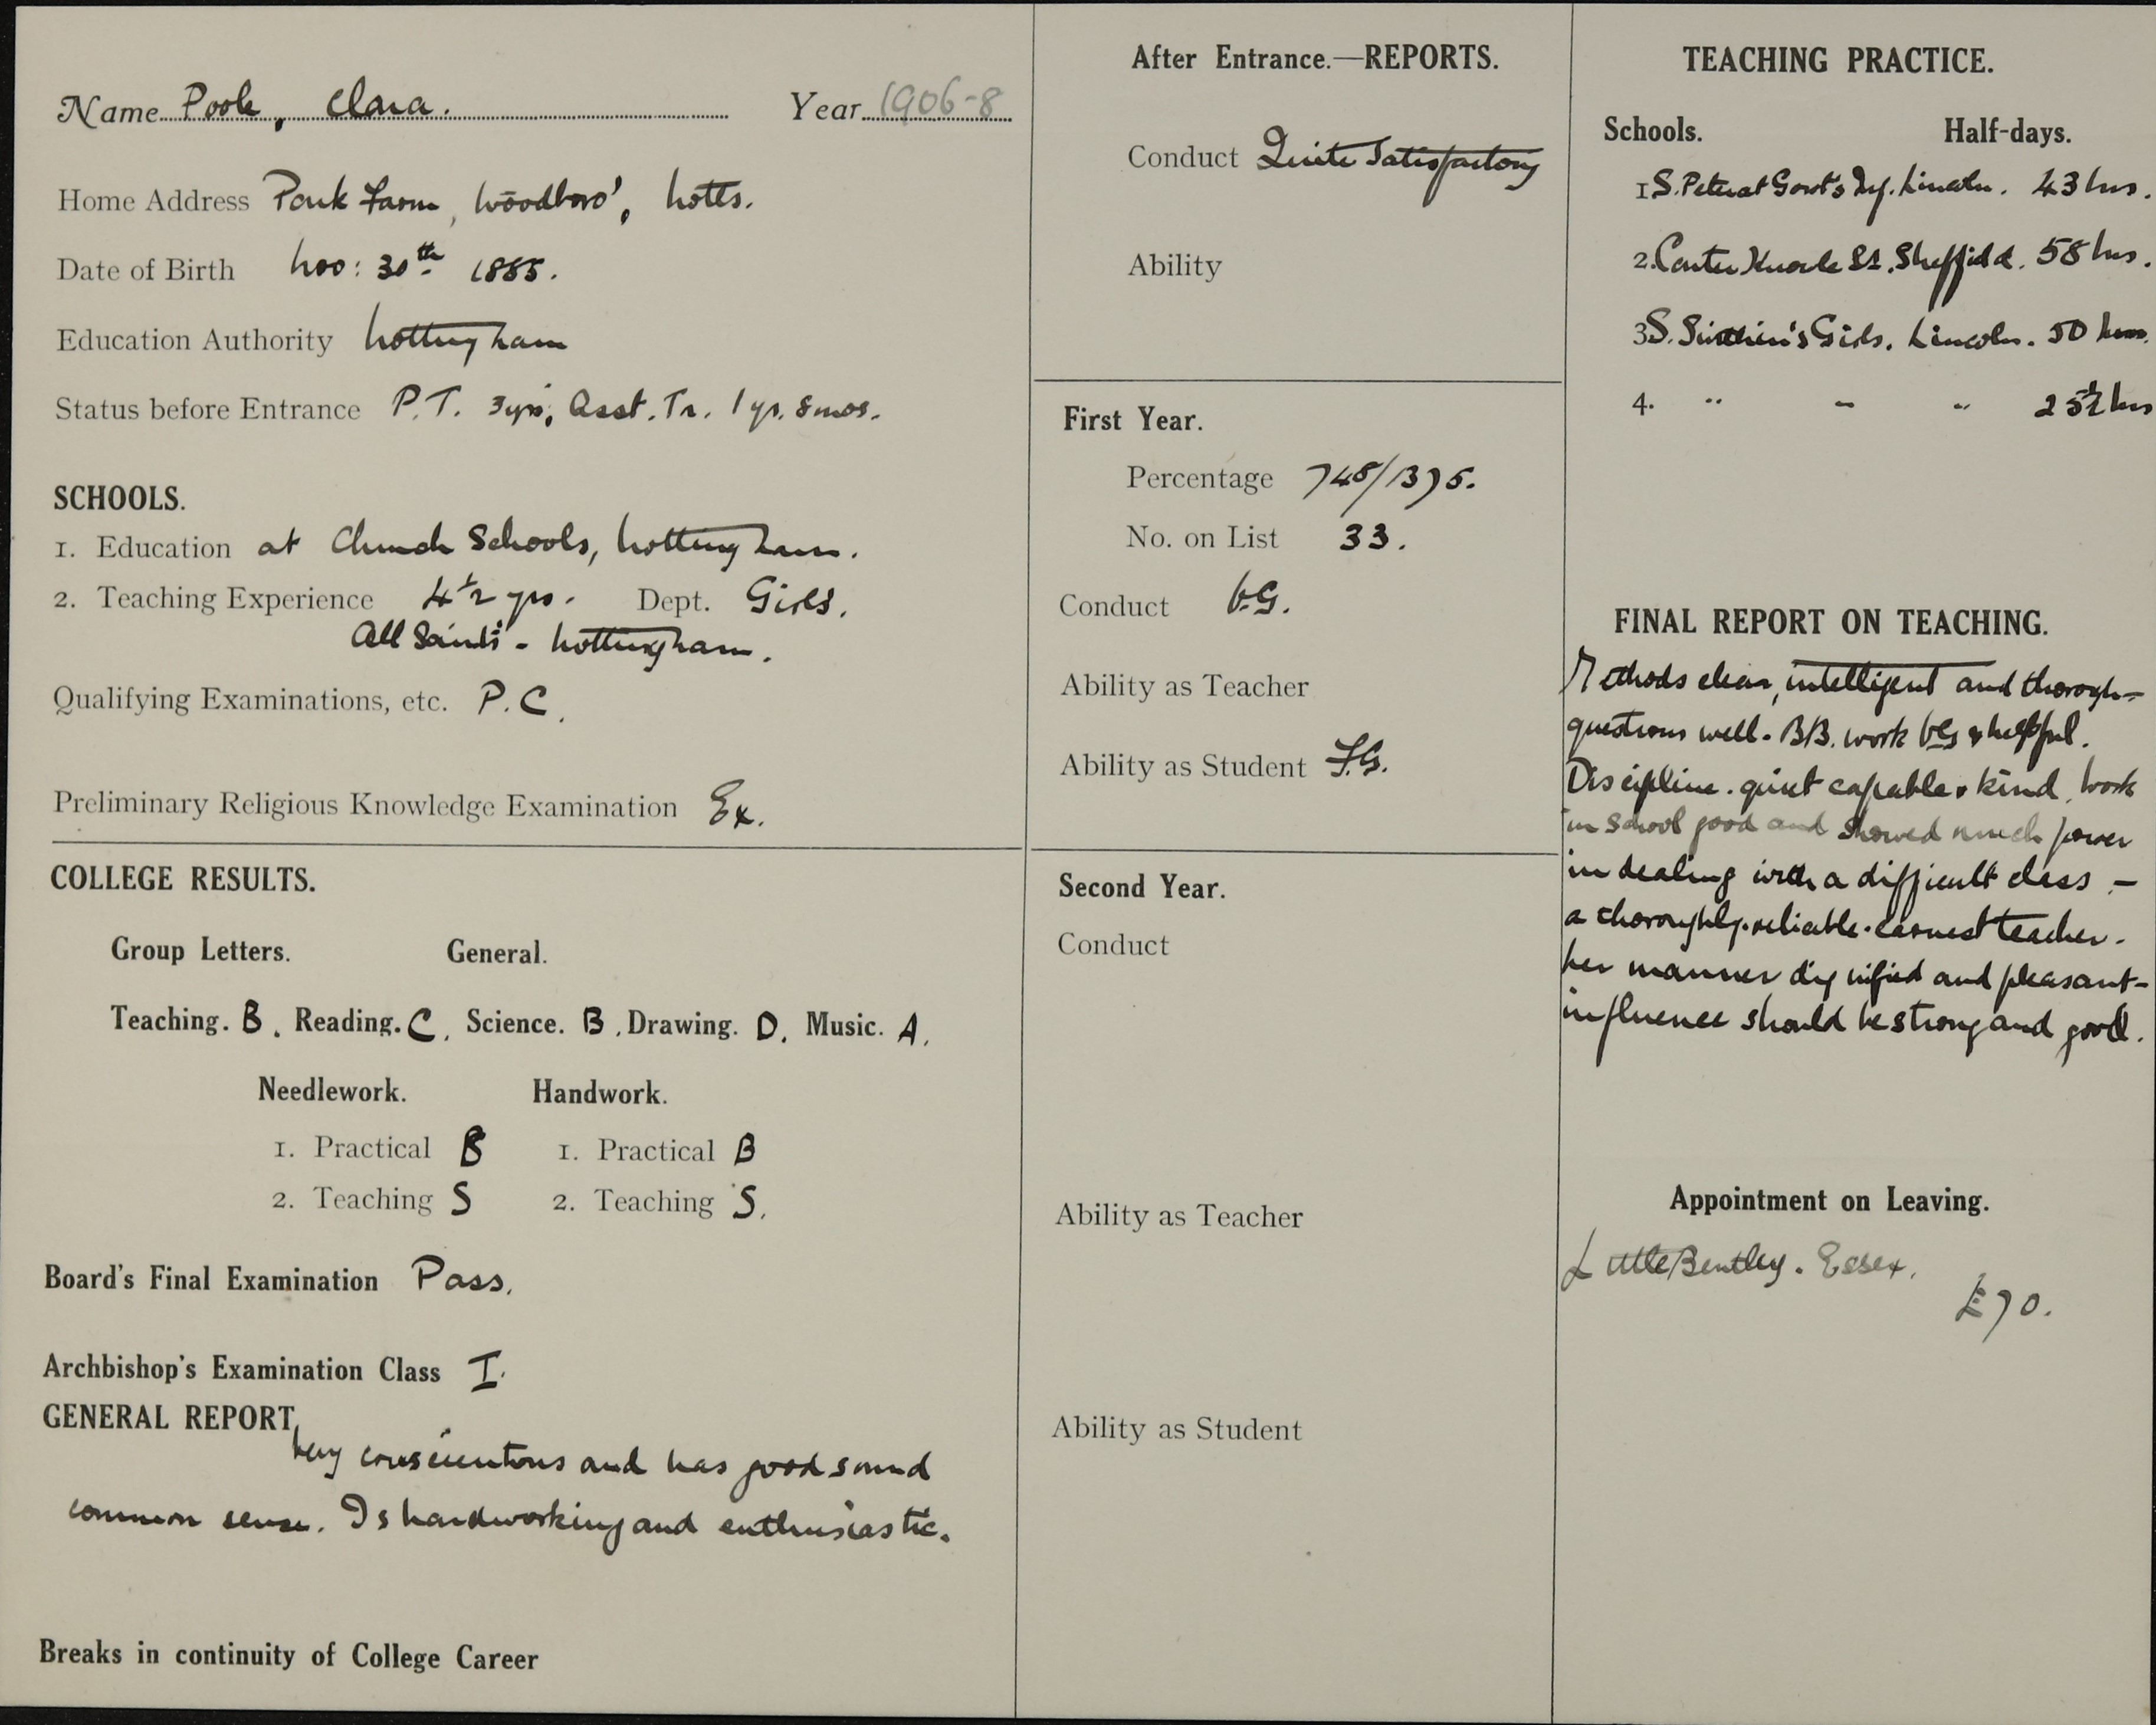 Name Poole, Clara. Year 1906-8
Home Address Park Farm, Woodboro', Notts.
Date of Birth Nov: 30th 1885.
Education Authority Nottingham
Status before Entrance P.T. 3yrs; Asst. Tr. 1 yr. 8 mos.
SCHOOLS.
1. Education at Church Schools, Nottingham.
2. Teaching Experience 4½ yrs. Dept. Girls.
All Saints' - Nottingham.
Qualifying Examinations, etc. P.C.
Preliminary Religious Knowledge Examination Ex.
COLLEGE RESULTS.
Group Letters. General.
Teaching. B. Reading. C. Science. B. Drawing. D. Music. A.
Needlework. Handwork.
1. Practical B 1. Practical B
2. Teaching S 2. Teaching S.
Board's Final Examination Pass.
Archbishop's Examination Class I.
GENERAL REPORT
Very conscientous and has good sound
common sense. Is hardworking and enthusiastic.
Breaks in continuity of College Career
After Entrance.—REPORTS.
Conduct Quite Satisfactory
Ability
First Year.
Percentage 748/1375.
No. on List 33.
Conduct V.G.
Ability as Teacher
Ability as Student F.G.
Second Year.
Conduct
Ability as Teacher
Ability as Student
TEACHING PRACTICE.
Schools. Half-days.
1. S. Peter at Gowts Lincoln. 43 hrs.
2. Carter Knowle Sheffield. 58 hrs.
3 S. Swithin's Girls. Lincoln. 50 hrs.
4. " - " 25½ hrs
FINAL REPORT ON TEACHING.
Methods clear, intelligent and thorogh-
questions well. BB. work VG & helpful.
Discipline. quiet capable & kind. Work
in school good and showed much power
in dealing with a difficult class -
a thoroughly. reliable. earnest teacher.
her manner dignified and pleasant-
influence should be strong and good.
Appointment on Leaving.
Little Bentley. Essex.
£70.